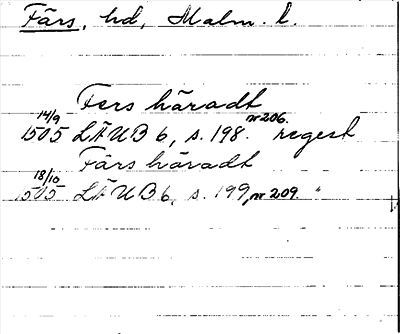 Färs, hd, Malm. l.
Fers häradt
14/9 1505 LÄUB 6, s. 198. nr 206. regest
Färs häradt
18/10 1505 LÄUB 6, s. 199, nr 209. "